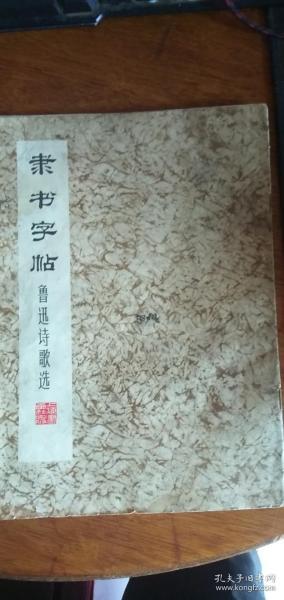 隶书字帖
鲁迅诗歌选
孔夫子旧书网